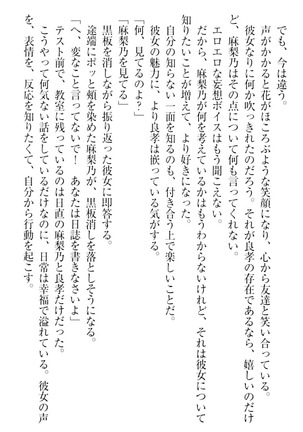 でも、今は違う。
声がかかると花がほころぶような笑顔になり、心から友達と笑い合っている。
彼女なりに何か吹っきれたのだろう。それが良孝の存在であるなら、嬉しいのだけ
ど、麻梨乃はその点について何も言ってくれない。
エロエロな妄想ボイスはもう聞こえない。
だから、麻梨乃が何を考えているかはもうわからないけれど、それだけ彼女について
知りたいことが増えて、より好きになった。
自分の知らない一面を知るのも、付き合う上で楽しいことだ。
彼女の魅力に、より良孝は嵌っている気がする。
「何、見てるのよ？」
「麻梨乃を見てる」
黒板を消しながら振り返った彼女に即答する。
途端にポッと頬を染めた麻梨乃が、黒板消しを落としそうになる。
「へ、変なこと言ってないで！　あなたは日誌を書きなさいよ」
テスト前で、教室に残っているのは日直の麻梨乃と良孝だけだった。
こうやって何気ない話をしているだけなのに、日常は幸福で溢れている。彼女の声
を、表情を、反応を知りたくて、自分から行動を起こす。